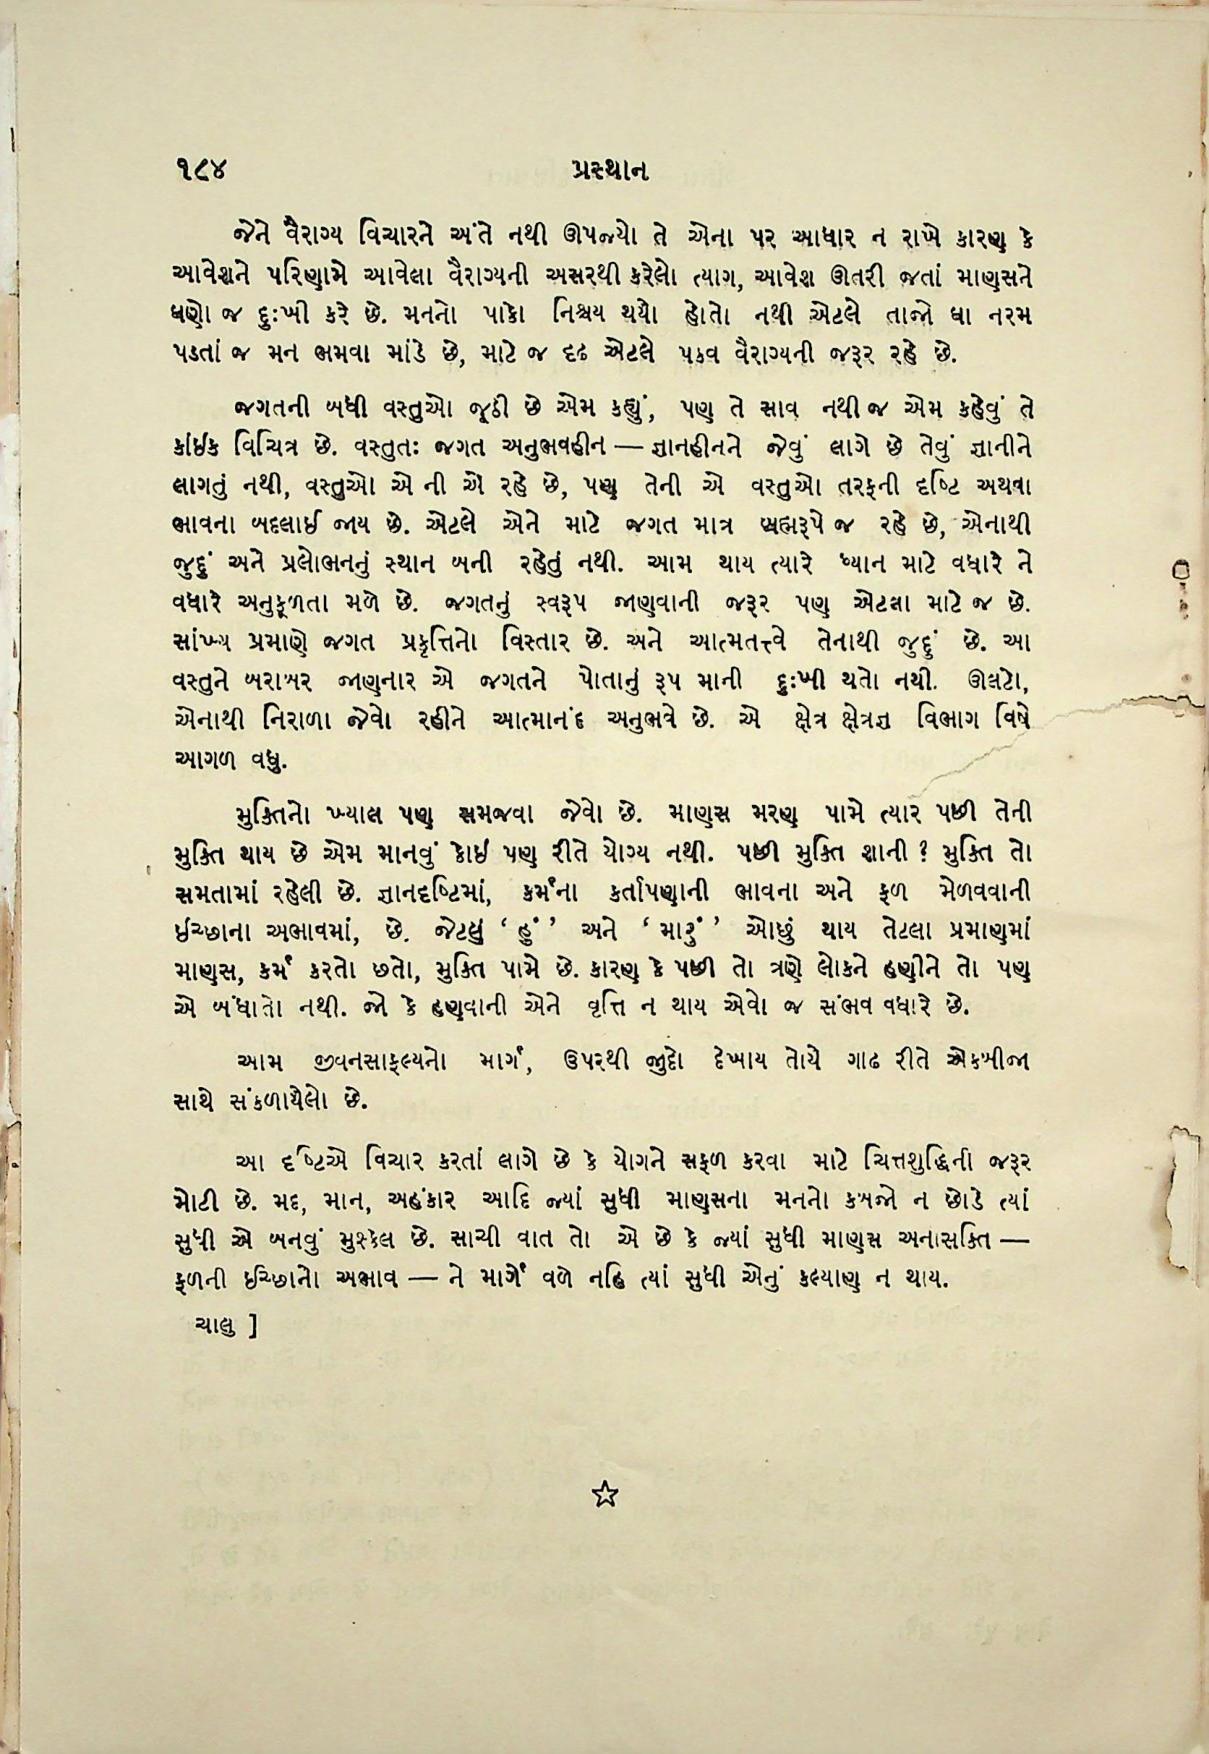 ૧૮૪ પ્રસ્થાન
જેને વૈરાગ્ય વિચારને અંતે નથી ઊપજ્યો તે એના પર આધાર ન રાખે કારણ કે
આવેશને પરિણામે આવેલા વૈરાગ્યની અસરથી કરેલો ત્યાગ, આવેશ ઊતરી જતાં માણસને
ઘણો જ દુઃખી કરે છે. મનનો પાકો નિશ્ચય થયો હોતો નથી એટલે તાજો ઘા નરમ
પડતાં જ મન ભમવા માંડે છે, માટે જ દૃઢ એટલે પકવ વૈરાગ્યની જરૂર રહે છે.
જગતની બધી વસ્તુઓ જૂઠી છે એમ કહ્યું, પણ તે સાવ નથી જ એમ કહેવું તે
કાંઈક વિચિત્ર છે. વસ્તુતઃ જગત અનુભવહીન — જ્ઞાનહીનને જેવું લાગે છે તેવું જ્ઞાનીને
લાગતું નથી, વસ્તુઓ એ ની એ રહે છે, પણ તેની એ વસ્તુઓ તરફની દૃષ્ટિ અથવા
ભાવના બદલાઈ જાય છે. એટલે એને માટે જગત માત્ર બ્રહ્મરૂપે જ રહે છે, એનાથી
જુદું અને પ્રલોભનનું સ્થાન બની રહેતું નથી. આમ થાય ત્યારે ધ્યાન માટે વધારે ને
વધારે અનુકૂળતા મળે છે. જગતનું સ્વરૂપ જાણવાની જરૂર પણ એટલા માટે જ છે.
સાંખ્ય પ્રમાણે જગત પ્રકૃત્તિનો વિસ્તાર છે. અને આત્મતત્ત્વે તેનાથી જુદું છે. આ
વસ્તુને બરાબર જાણનાર એ જગતને પોતાનું રૂપ માની દુઃખી થતો નથી. ઊલટો,
એનાથી નિરાળા જેવો રહીને આત્માનંદ અનુભવે છે. એ ક્ષેત્ર ક્ષેત્રજ્ઞ વિભાગ વિષે
આગળ વધુ.
મુક્તિનો ખ્યાલ પણ સમજવા જેવો છે. માણસ મરણ પામે ત્યાર પછી તેની
મુક્તિ થાય છે એમ માનવું કોઈ પણ રીતે યોગ્ય નથી. પછી મુક્તિ શાની ? મુક્તિ તો
સમતામાં રહેલી છે. જ્ઞાનદૃષ્ટિમાં, કર્મના કર્તાપણાની ભાવના અને ફળ મેળવવાની
ઈચ્છાના અભાવમાં, છે. જેટલું ‘ હું ’ અને ‘ મારું ’ ઓછું થાય તેટલા પ્રમાણમાં
માણસ, કર્મ કરતો છતો, મુક્તિ પામે છે. કારણ કે પછી તો ત્રણે લોકને હણીને તો પણ
એ બંધાતો નથી. જો કે હણવાની એને વૃત્તિ ન થાય એવો જ સંભવ વધારે છે.
આમ જીવનસાફલ્યનો માર્ગ, ઉપરથી જુદો દેખાય તોયે ગાઢ રીતે એકબીજા
સાથે સંકળાયેલો છે.
આ દૃષ્ટિએ વિચાર કરતાં લાગે છે કે યોગને સફળ કરવા માટે ચિત્તશુદ્ધિની જરૂર
મોટી છે. મદ, માન, અહંકાર આદિ જ્યાં સુધી માણસના મનનો કબજો ન છોડે ત્યાં
સુધી એ બનવું મુશ્કેલ છે. સાચી વાત તો એ છે કે જ્યાં સુધી માણસ અનાસક્તિ —
ફળની ઈચ્છાનો અભાવ — ને માર્ગે વળે નહિ ત્યાં સુધી એનું કલ્યાણ ન થાય.
ચાલુ ]